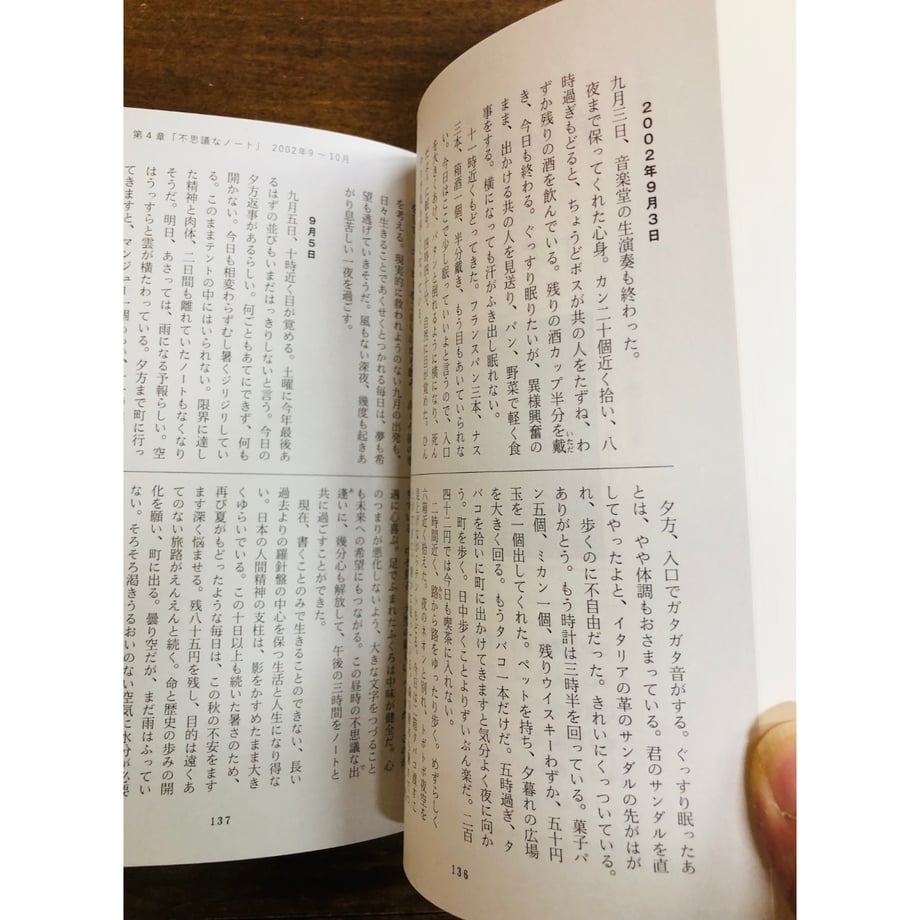 2002年9月3日
九月三日、音楽堂の生演奏も終わった。
夜まで保ってくれた心身。カン二十個近く拾い、八
時過ぎもどると、ちょうどボスが共の人をたずね、わ
ずか残りの酒を飲んでいる。残りの酒カップ半分を戴
いただ
き、今日も終わる。ぐっすり眠りたいが、異様興奮の
まま、出かける共の人を見送り、パン、野菜で軽く食
事をする。横になっても汗がふき出し眠れない。
十一時近くもどってきた。フランスパン三本、ナス
三本、箱酒一個、半分戴き、もう目もあいていられな
い。今日はここで少し眠っていいよと言うので、入口
夕方、入口でガタガタ音がする。ぐっすり眠ったあ
とは、やや体調もおさまっている。君のサンダルを直
してやったよと、イタリアの革のサンダルの先がはが
れ、歩くのに不自由だった。きれいにくっついている。
ありがとう。もう時計は三時半を回っている。菓子パ
ン五個、ミカン一個、残りウイスキーわずか、五十円
玉を一個出してくれた。ペットを持ち、夕暮れの広場
を大きく回る。もうタバコ一本だけだ。五時過ぎ、タ
バコを拾いに町に出かけてきますと気分よく夜に向か
う。町を歩く。日中歩くことよりずいぶん楽だ。二百
四十二円では今日も喫茶に入れない。
二時間近く、路から路をゆったり歩く。めずらしく
136
第4章「不思議なノート」 2002年9〜10月
を考える。現実的に救われようのない九月の出発も、
日々生きることであくせくとつかれる毎日は、夢も希
望も逃げていきそうだ。風もない深夜、幾度も起きあ
がり息苦しい一夜を過ごす。
9月5日
九月五日、十時近く目が覚める。土曜に今年最後あ
るはずの並びもいまだはっきりしないと言う。今日の
夕方返事があるらしい。何ごともあてにできず、何も
開かない。今日も相変わらずむし暑くジリジリしてい
る。このままテントの中にはいられない。限界に達し
た精神と肉体、二日間も離れていたノートもなくなり
そうだ。明日、あさっては、雨になる予報らしい。空
はうっすらと雲が横たわっている。夕方まで町に行っ
遇に心喜ぶ。足でふまれたふくろは中味が健全だ。心
のつまりが悪化しないよう、大きな文字をつづること
も未来への希望にもつながる。この昼時の不思議な出
逢いに、幾分心も解放して、午後の三時間をノートと
共に過ごすことができた。
現在、書くことのみで生きることのできない、長い
過去よりの羅針盤の中心を保つ生活と人生になり得な
い。日本の人間精神の支柱は、影をかすめたまま大き
くゆらいでいる。この十日以上も続いた暑さのため、
再び夏がもどったような毎日は、この秋の不安をます
ます深く悩ませる。残八十五円を残し、目的は遠くあ
てのない旅路がえんえんと続く。命と歴史の歩みの開
化を願い、町に出る。曇り空だが、まだ雨はふってい
ない。そろそろ渇きうるおいのない空気に水分が必要
137